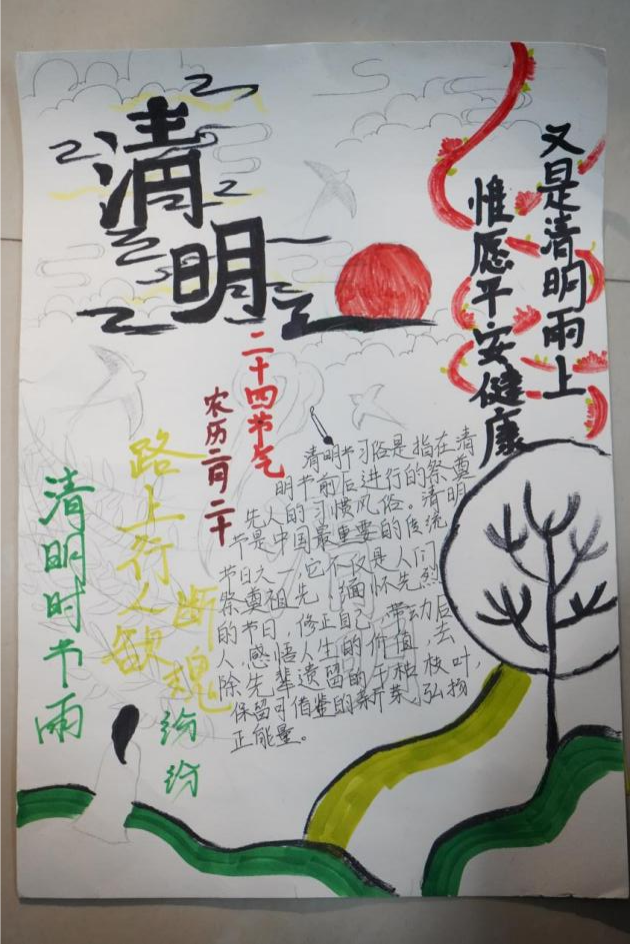 清明
又是清明雨上
惟愿平安健康
二十四节气
农历二月二十
清明时节雨
纷纷
路上行人欲
断魂
清明节习俗是指在清
明节前后进行的祭奠
先人的习惯风俗。清明
节是中国最重要的传统
节日之一,它不仅是人们
祭奠祖先,缅怀先烈
的节日,修正自己,带动后
人,感悟人生的价值,去
除先辈遗留的干枯枝叶,
保留可借鉴的新芽,弘扬
正能量。